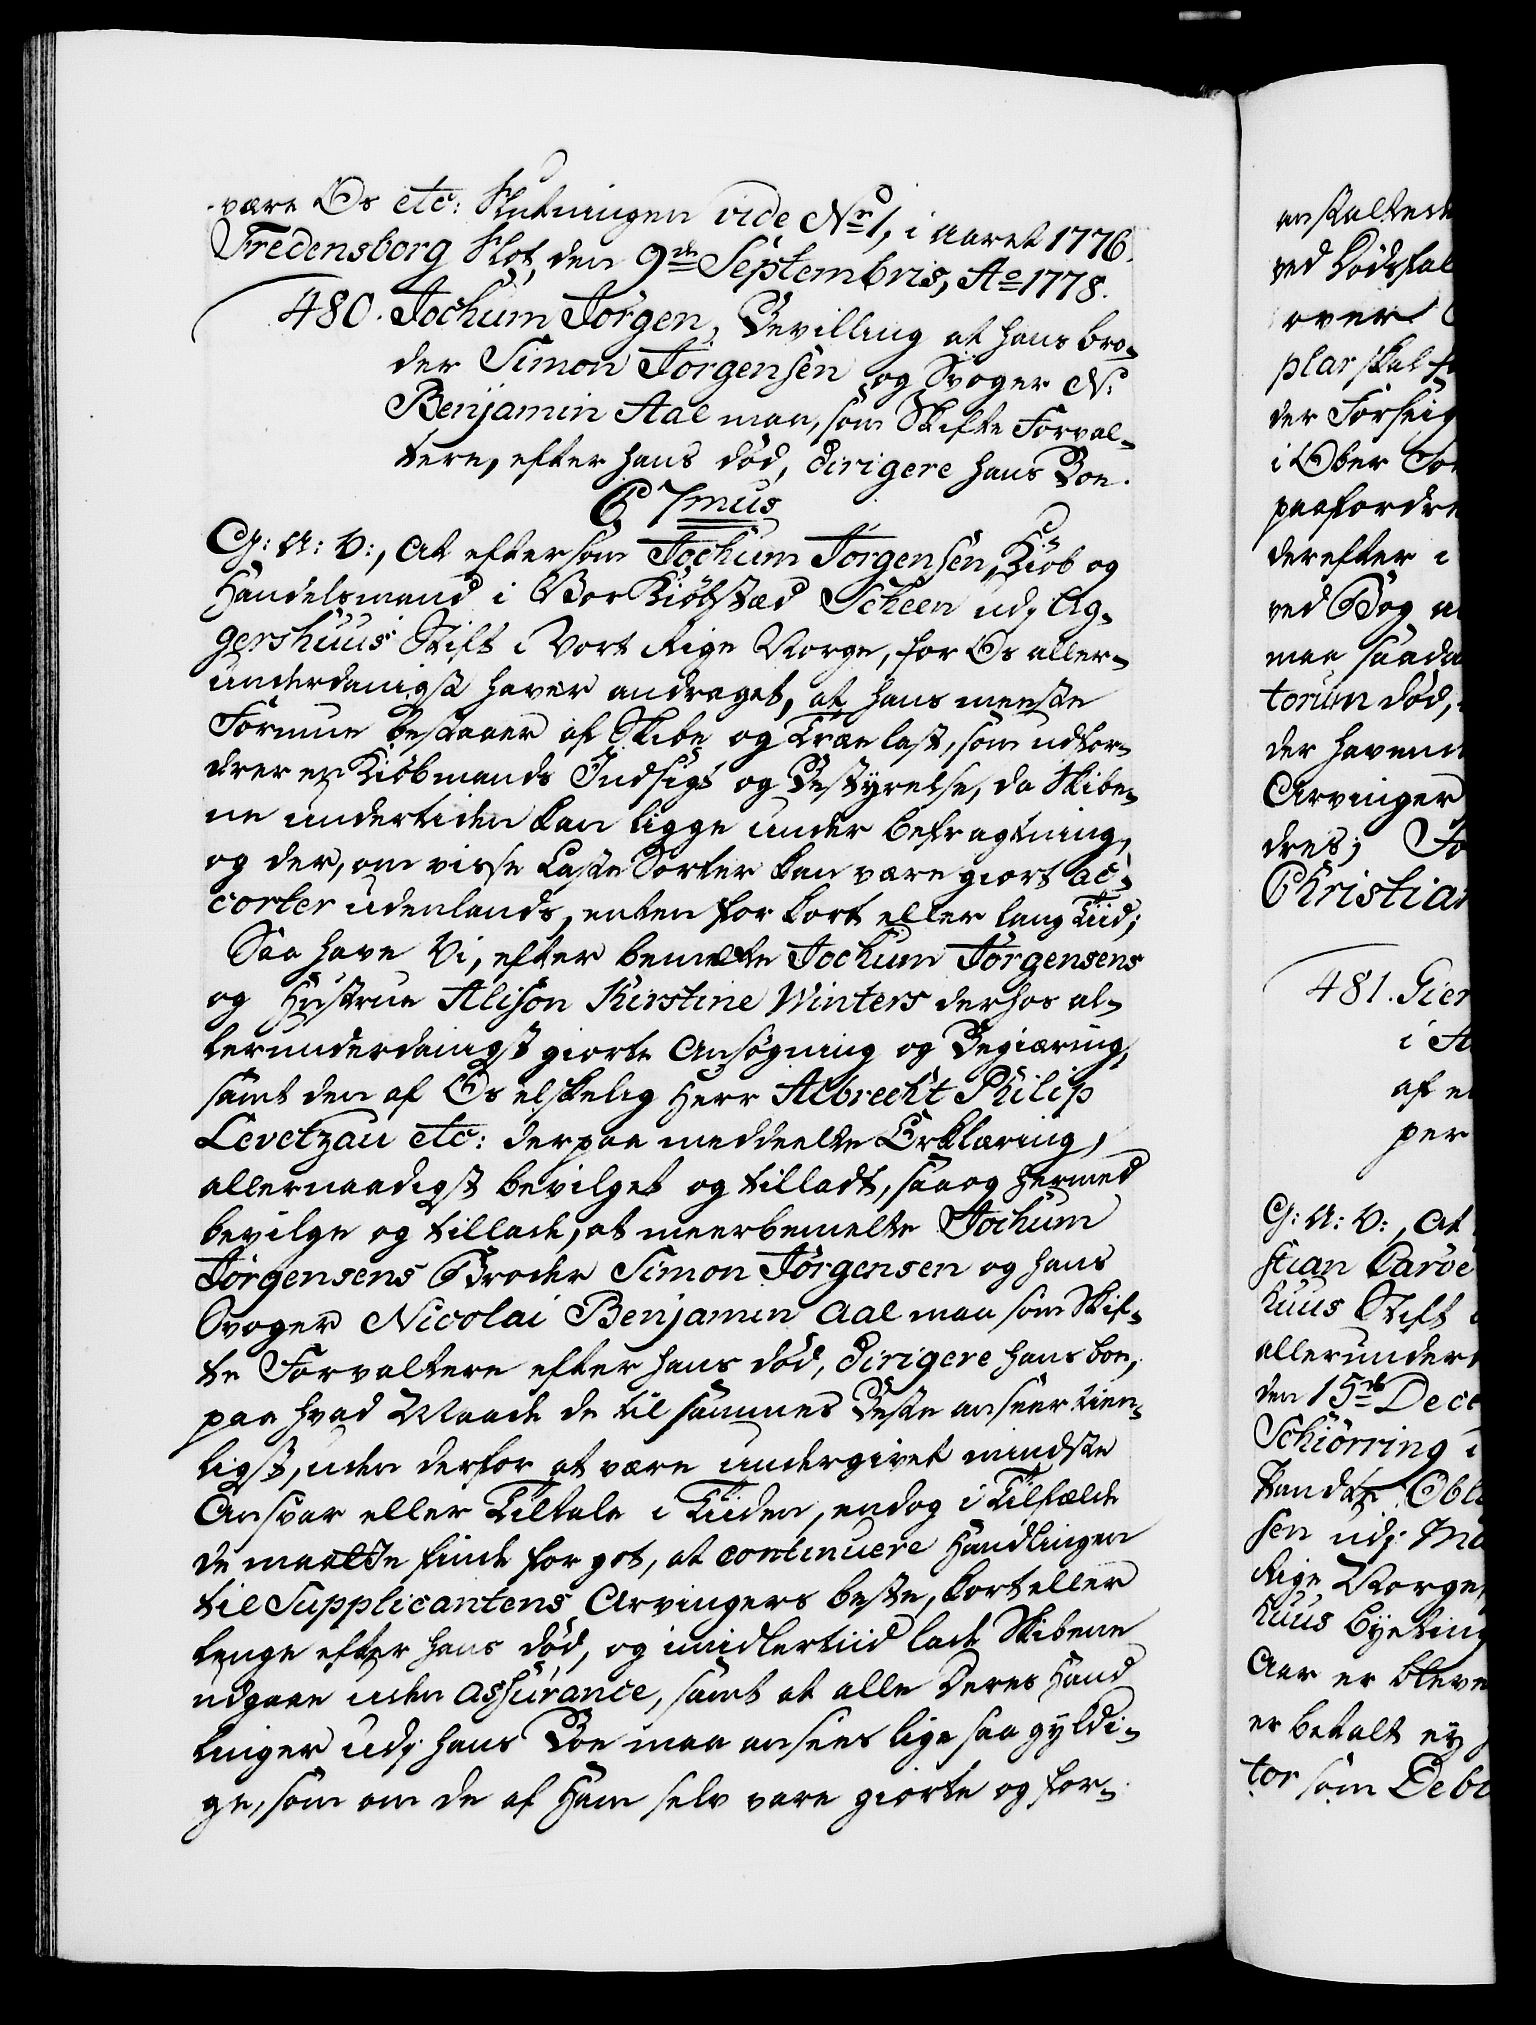 være Os etc: Slutningen vide No 1, i Aaret 1776.
Fredensborg Slot, den 9de Septembris, Ao 1778.
480. Jochum Jørgen, Bevilling at hans bro-
der Simon Jørgensen og Svoger N:
Benjamin Aal maa, som Skifte Forval-
tere, efter hans død, dirigere hans Boe.
C 7mus
G: A: V:, At eftersom Jochum Jørgensen, Kiøb og
Handelsmand i Vor Kiøbstæd Scheen udj Ag-
gershuus Stift i Vort Rige Norge, for Os aller-
underdanigst haver andraget, at hans meeste
Formue bestaaer af Skibe og Trælast, som udfor-
drer en Kiøbmands Indsigt og Bestyrelse, da Skibe-
ne undertiden kan ligge under befragtning,
og der, om visse Laste Sorter kan være giort ac-
corter udenlands, enten for kort eller lang Tid;
Saa have Vi, efter bemelte Jochum Jørgensens
og Hustrue Alison Kirstine Winters derhos al-
lerunderdanigst giorte Ansøgning og Begiæring,
samt den af Os elskelig Herr Albrecht Philip
Levetzau etc: derpaa meddeelte Erklæring,
allernaadigst bevilget og tilladt, saa og hermed
bevilge og tillade, at meerbemelte Jochum
Jørgensens Broder Simon Jørgensen og hans
Svoger Nicolai Benjamin Aal maa som Skif-
te Forvaltere efter hans død, dirigere hans boe,
paa hvad Maade de til sammes Beste anseer tien-
ligst, uden derfor at være undergivet mindste
Ansvar eller Tiltale i Tiiden, endog i Tilfælde
de maatte finde for got, at continuere Handlingen
til Supplicantens Arvingers beste, kort eller
lenge efter hans død, og imidlertiid lade Skibene
udgaae uden assurance, samt at alle deres Hand
linger udj hans Boe maa ansees lige saa gyldi-
ge, som om de af Ham selv vare giorte og for-
anstaltede
ved Dødsfal
over
plar skal
der Forseig
i Ober
paafordre
derefter i
ved Bog
maa saada
torum død,
der havend
Arvinger
dres; Fo
Christian
481. Gier
i A
af e
per
G: A: V:, At
stian
huus Stift
allerunder
den 15de Dece
Schiørring
Obli
sen udj
Rige Norge,
huus Byeting
Aar er bleve
er betalt ey
tor som Debi